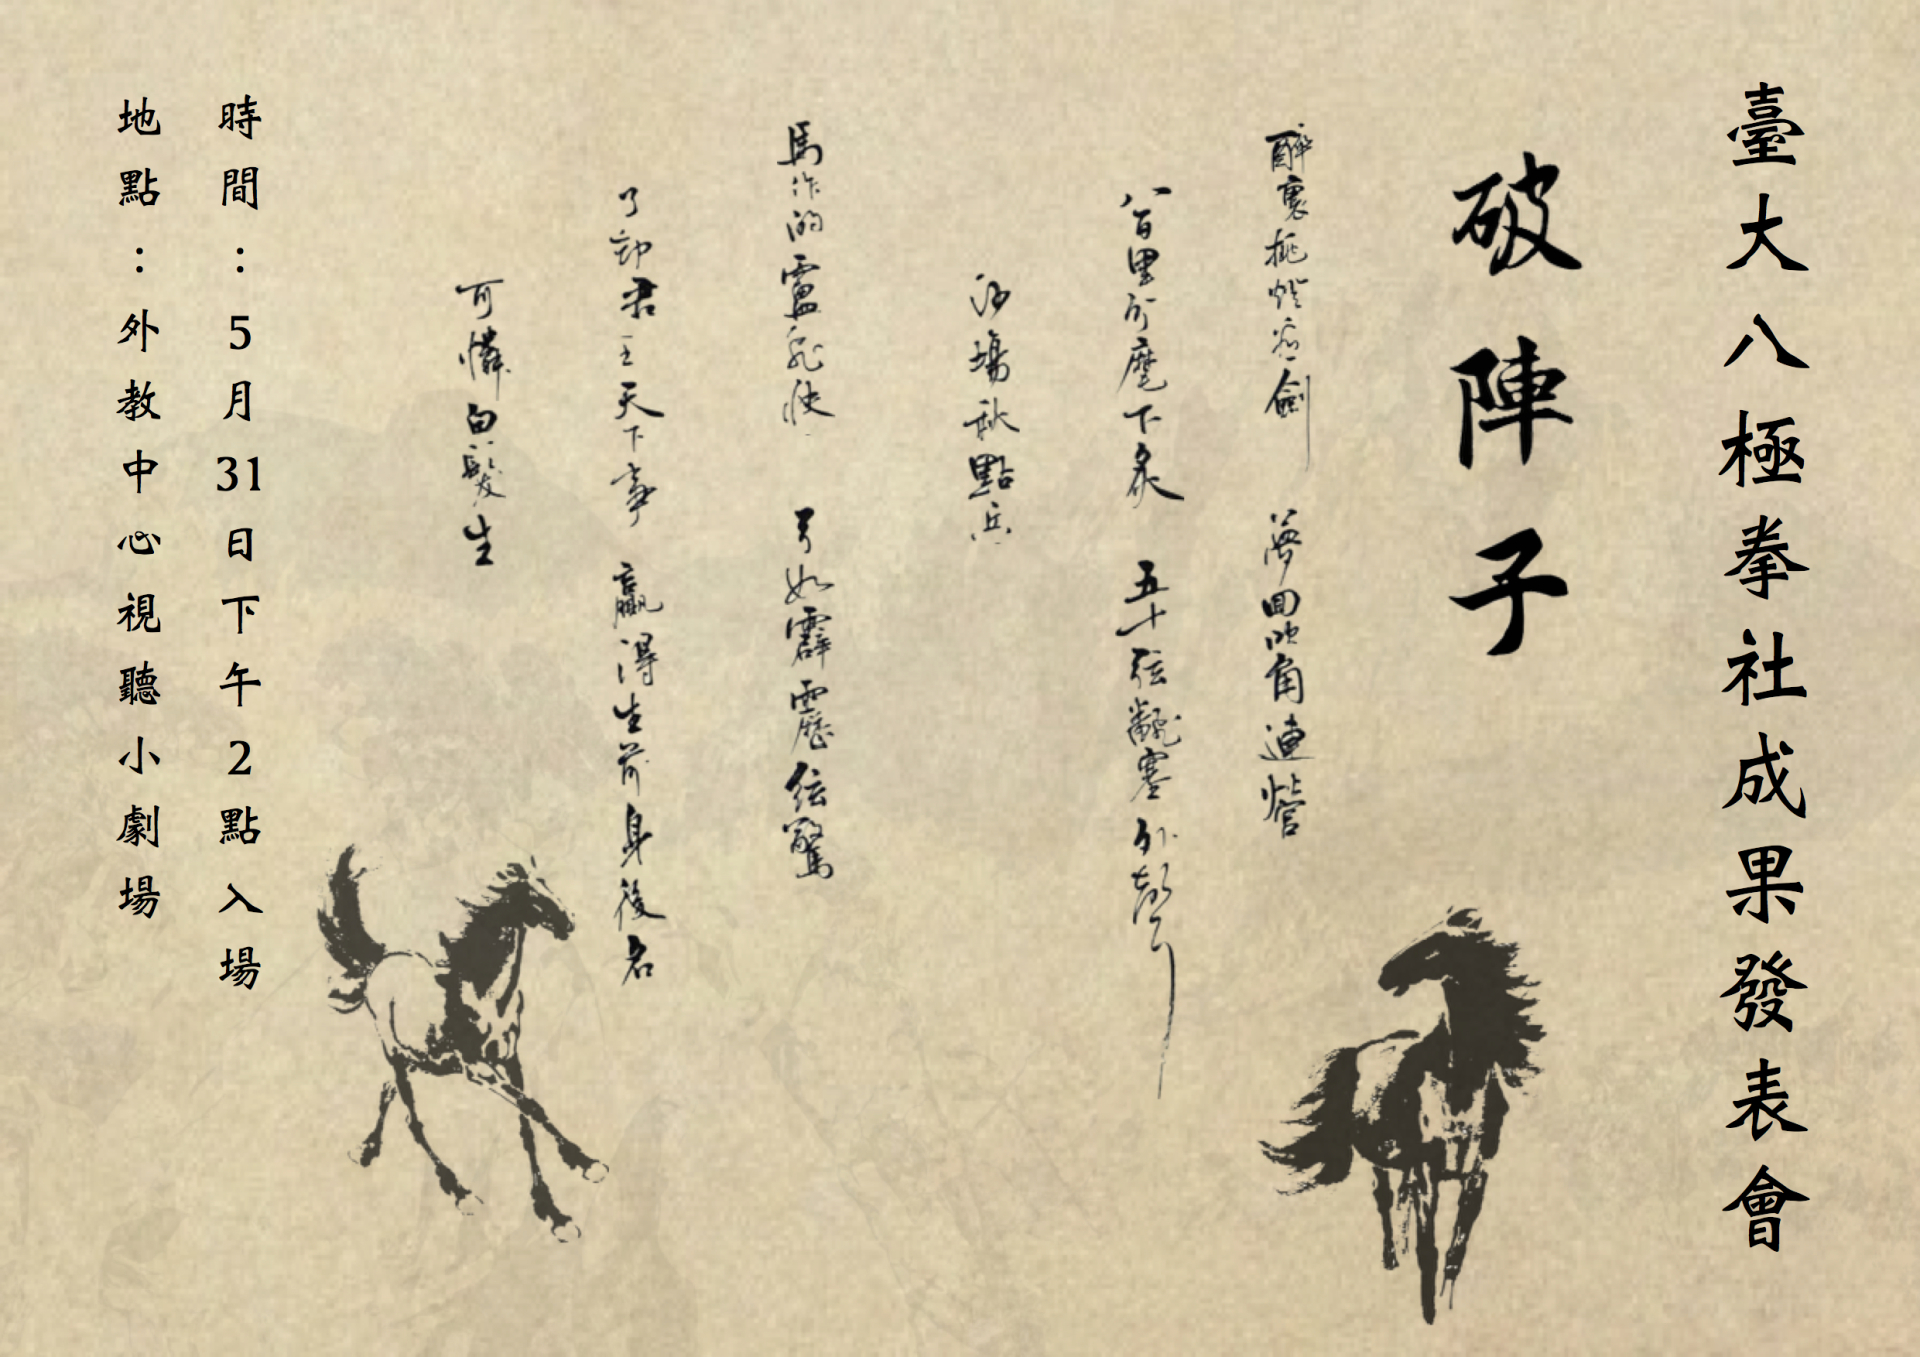 臺大八極拳社成果發表會
破陣子
醉裏挑燈看劍 夢回吹角連營
八百里分麾下炙 五十弦翻塞外聲
沙場秋點兵
馬作的盧飛快 弓如霹靂弦驚
了卻君王天下事 贏得生前身後名
可憐白髮生
時間:5月31日下午2點入場
地點:外教中心視聽小劇場